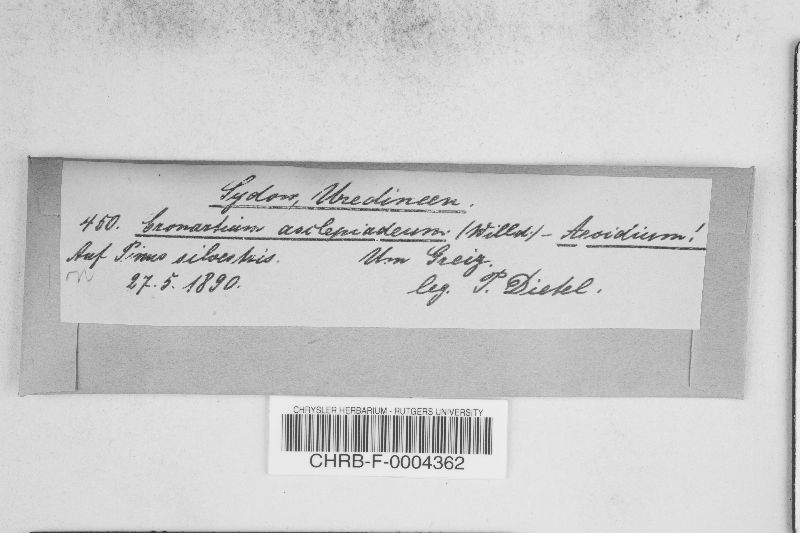 Sydow, Uredineen.
450. Cronartium asclepiadeum (Willd) – Aecidium!
Auf Pinus silvestris. Um Greiz.
27. 5. 1890. leg. P. Dietel.
CHRYSLER HERBARIUM - RUTGERS UNIVERSITY
CHRB-F-0004362